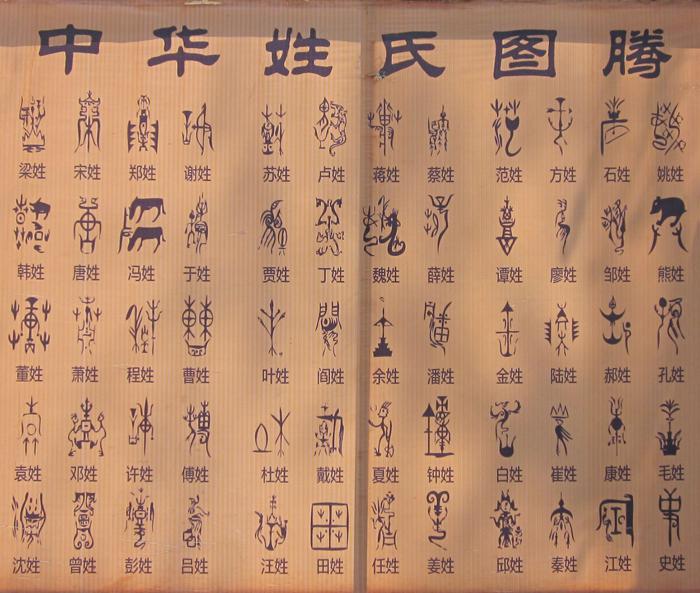 中华姓氏图腾
梁姓 宋姓 郑姓 谢姓 苏姓 卢姓 蒋姓 蔡姓 范姓 方姓 石姓 姚姓
韩姓 唐姓 冯姓 于姓 贾姓 丁姓 魏姓 薛姓 谭姓 廖姓 邹姓 熊姓
董姓 萧姓 程姓 曹姓 叶姓 阎姓 余姓 潘姓 金姓 陆姓 郝姓 孔姓
袁姓 邓姓 许姓 傅姓 杜姓 戴姓 夏姓 钟姓 白姓 崔姓 康姓 毛姓
沈姓 曾姓 彭姓 吕姓 汪姓 田姓 任姓 姜姓 邱姓 秦姓 江姓 史姓